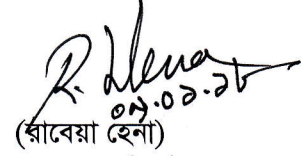 R. Hena
০৯.০১.১৮
(রাবেয়া হেনা)